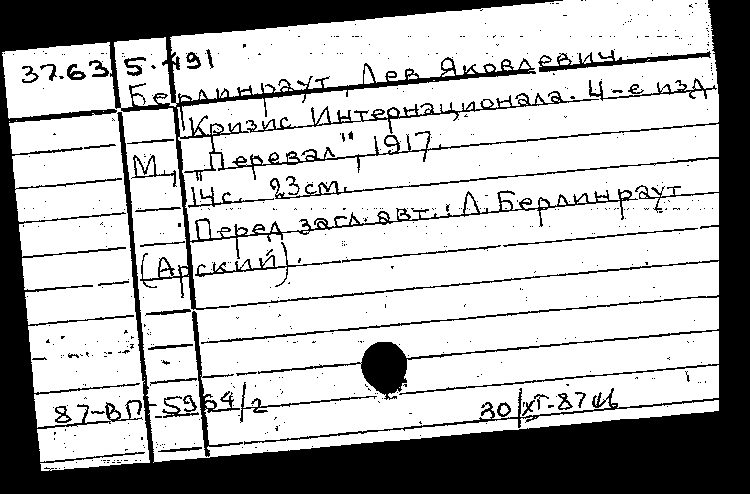 37.63.5.491
Берлинраут, Лев Яковлевич.
Кризис Интернационала. 4-е изд.
М., "Перевал", 1917.
14с. 23см.
Перед загл. авт.: Л. Берлинраут
(Арский).
87-ВП-5964/2
30/XI-87